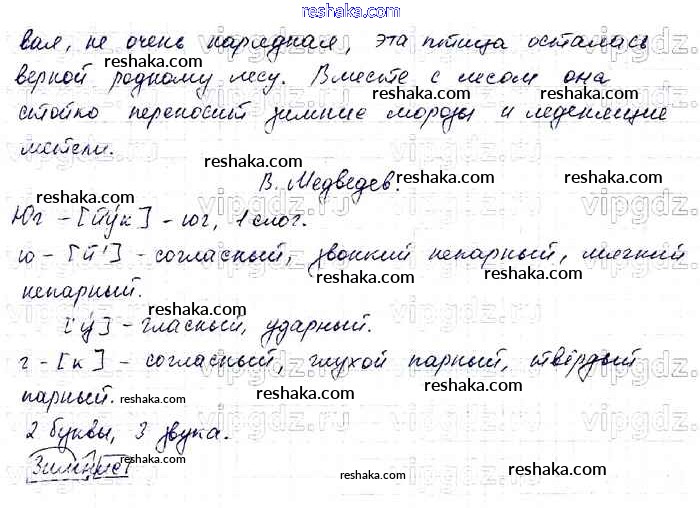 reshaka.com
вая, не очень нарядная, эта птица осталась
верной родному лесу. Вместе с лесом она
reshaka.com
reshaka.com
стойко переносит зимние морозы и леденящие
reshaka.com
reshaka.com
метели.
reshaka.com
В. Медведев.
reshaka.com
reshaka.com
Юг - [й'у́к] - юг, 1 слог.
reshaka.com
ю - [й'] - согласный, звонкий непарный, мягкий
reshaka.com
reshaka.com
непарный.
reshaka.com
[у́] - гласный, ударный.
reshaka.com
г - [к] - согласный, глухой парный, твёрдый
reshaka.com
парный.
reshaka.com
reshaka.com
2 буквы, 3 звука.
reshaka.com
reshaka.com
reshaka.com
reshaka.com